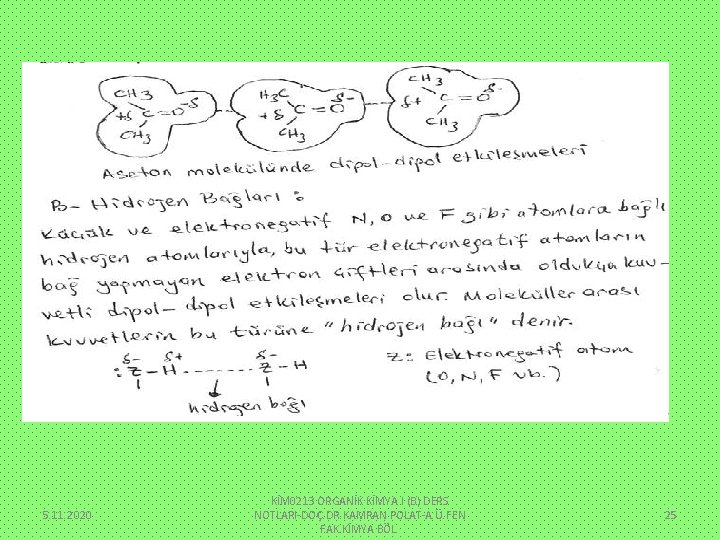 CH3 H3C CH3
+δ C=O -δ +δ C=O δ- δ+ C=O δ-
CH3 CH3 CH3
Aseton molekülünde dipol-dipol etkileşmeleri
B- Hidrojen Bağları :
Küçük ve elektronegatif N, O ve F gibi atomlara bağlı
hidrojen atomlarıyla, bu tür elektronegatif atomların
bağ yapmayan elektron çiftleri arasında oldukça kuv-
vetli dipol-dipol etkileşmeleri olur. Moleküller arası
kuvvetlerin bu türüne "hidrojen bağı" denir.
δ- δ+ δ-
:Z-H ------- Z-H
z: Elektronegatif atom
(O, N, F vb.)
hidrojen bağı
5.11.2020
KİM0213 ORGANİK KİMYA I (B) DERS
NOTLARI-DOÇ.DR.KAMRAN POLAT-A.Ü.FEN
FAK.KİMYA BÖL
25